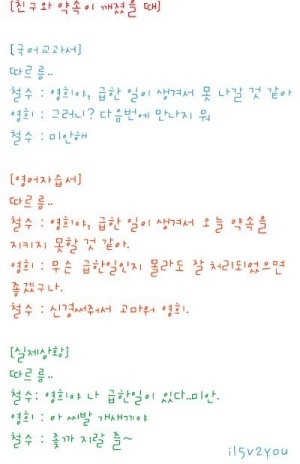 [친구와 약속이 깨졌을 때]
[국어교과서]
따르릉..
철수 : 영희야, 급한 일이 생겨서 못 나갈 것 같아
영희 : 그러니? 다음번에 만나지 뭐
철수 : 미안해
[영어자습서]
따르릉..
철수 : 영희야, 급한 일이 생겨서 오늘 약속을
지키지 못할 것 같아.
영희 : 무슨 급한일인지 몰라도 잘 처리되었으면
좋겠구나.
철수 : 신경써줘서 고마워 영희.
[실제상황]
따르릉..
철수: 영희야 나 급한일이 있다..미안.
영희 : 아 씨발 개새끼야
철수 : 좆까 지랄 즐~
il5v2you